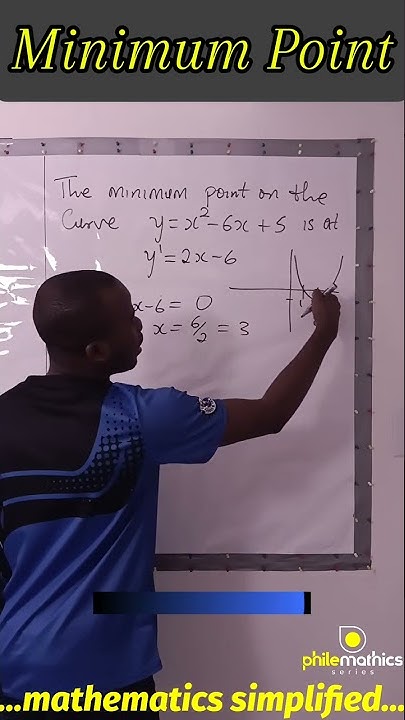 Minimum Point
The minimum point on the
Curve y = x² - 6x + 5 is at
y' = 2x - 6
x - 6 = 0
x = 6/2 = 3
philemathics
series
...mathematics simplified...